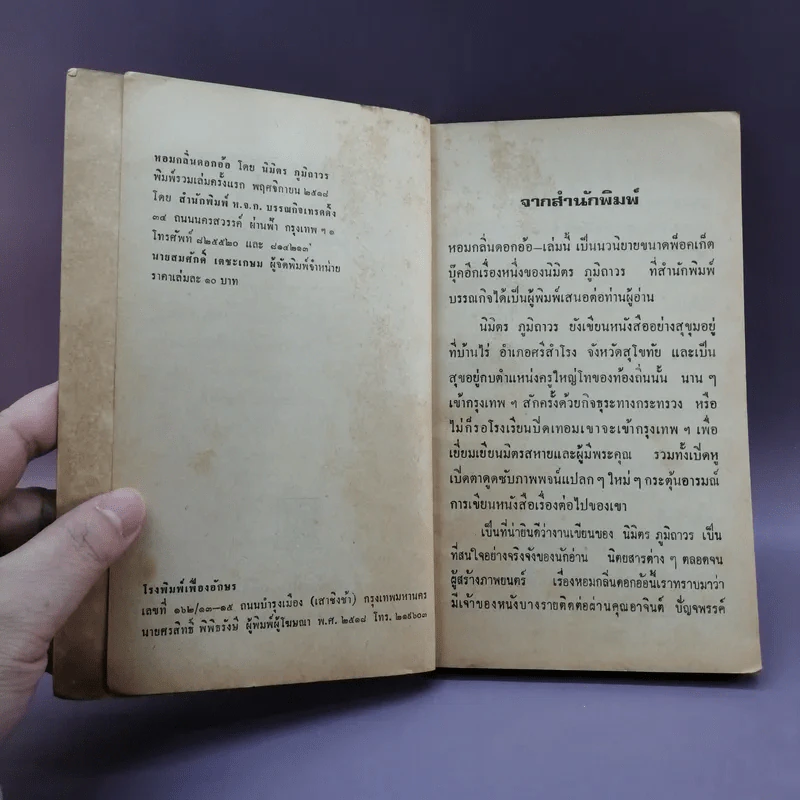 หอมกลิ่นดอกอ้อ โดย นิมิตร ภูมิถาวร
พิมพ์รวมเล่มครั้งแรก พฤศจิกายน ๒๕๑๘
โดย สำนักพิมพ์ ห.จ.ก. บรรณกิจเทรดดิ้ง
๓๔ ถนนนครสวรรค์ ผ่านฟ้า กรุงเทพ ฯ ๑
โทรศัพท์ ๘๒๕๕๒๐ และ ๘๑๔๒๑๓
นายสมศักดิ์ เตชะเกษม ผู้จัดพิมพ์จำหน่าย
ราคาเล่มละ ๑๐ บาท
โรงพิมพ์เฟื่องอักษร
เลขที่ ๑๖๒/๑๓–๑๕ ถนนบำรุงเมือง (เสาชิงช้า) กรุงเทพมหานคร
นายศรสิทธิ์ พิพิธรังษี ผู้พิมพ์ผู้โฆษณา พ.ศ. ๒๕๑๘ โทร. ๒๑๕๖๐๓
จากสำนักพิมพ์
หอมกลิ่นดอกอ้อ–เล่มนี้ เป็นนวนิยายขนาดพ็อคเก็ต
บุ๊คอีกเรื่องหนึ่งของนิมิตร ภูมิถาวร ที่สำนักพิมพ์
บรรณกิจได้เป็นผู้พิมพ์เสนอต่อท่านผู้อ่าน
นิมิตร ภูมิถาวร ยังเขียนหนังสืออย่างสุขุมอยู่
ที่บ้านไร่ อำเภอศรีสำโรง จังหวัดสุโขทัย และเป็น
สุขอยู่กบตำแหน่งครูใหญ่โทของท้องถิ่นนั้น นาน ๆ
เข้ากรุงเทพ ฯ สักครั้งด้วยกิจธุระทางกระทรวง หรือ
ไม่ก็รอโรงเรียนปิดเทอมเขาจะเข้ากรุงเทพ ฯ เพื่อ
เยี่ยมเยียนมิตรสหายและผู้มีพระคุณ รวมทั้งเปิดหู
เปิดตาดูดซับภาพพจน์แปลก ๆ ใหม่ ๆ กระตุ้นอารมณ์
การเขียนหนังสือเรื่องต่อไปของเขา
เป็นที่น่ายินดีว่างานเขียนของ นิมิตร ภูมิถาวร เป็น
ที่สนใจอย่างจริงจังของนักอ่าน นิตยสารต่าง ๆ ตลอดจน
ผู้สร้างภาพยนตร์ เรื่องหอมกลิ่นดอกอ้อนี้เราทราบมาว่า
มีเจ้าของหนังบางรายติดต่อผ่านคุณอาจินต์ ปัญจพรรค์